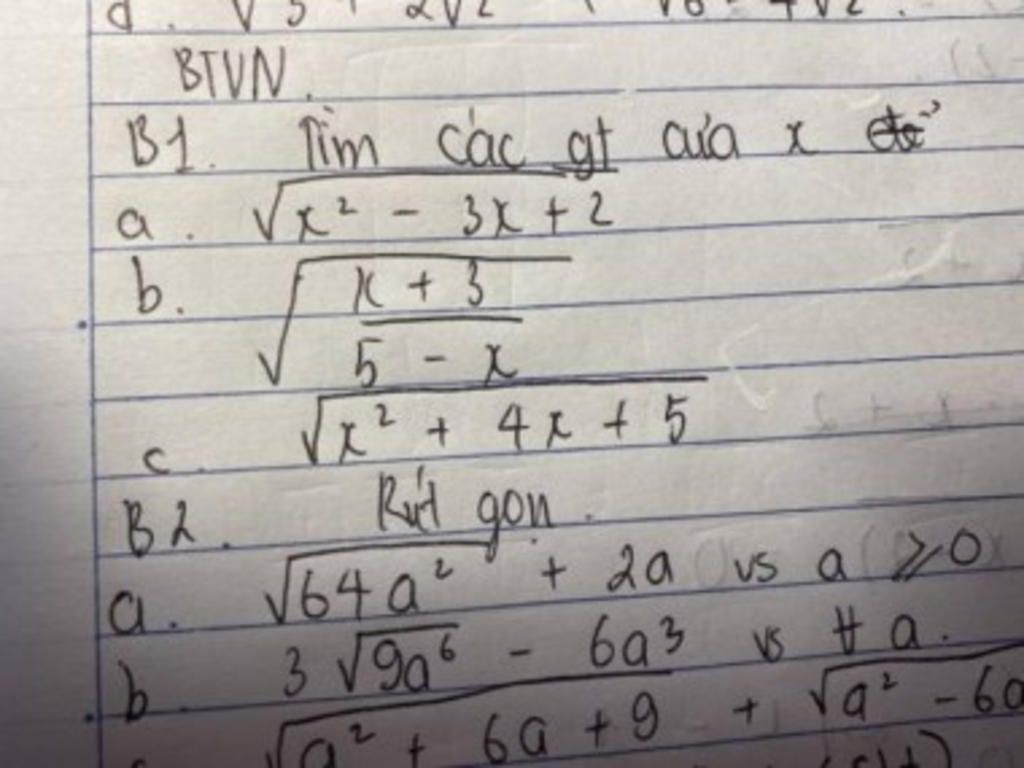 d. √3 + 2√2 + √6 - 4√2.
BTVN.
B1. Tìm các gt của x để
a. √(x² - 3x + 2)
b. √((x + 3)/(5 - x))
c. √(x² + 4x + 5)
B2. Rút gọn.
a. √(64a²) + 2a vs a ≥ 0
b. 3√(9a⁶) - 6a³ vs ∀ a.
√(a² + 6a + 9) + √(a² - 6a